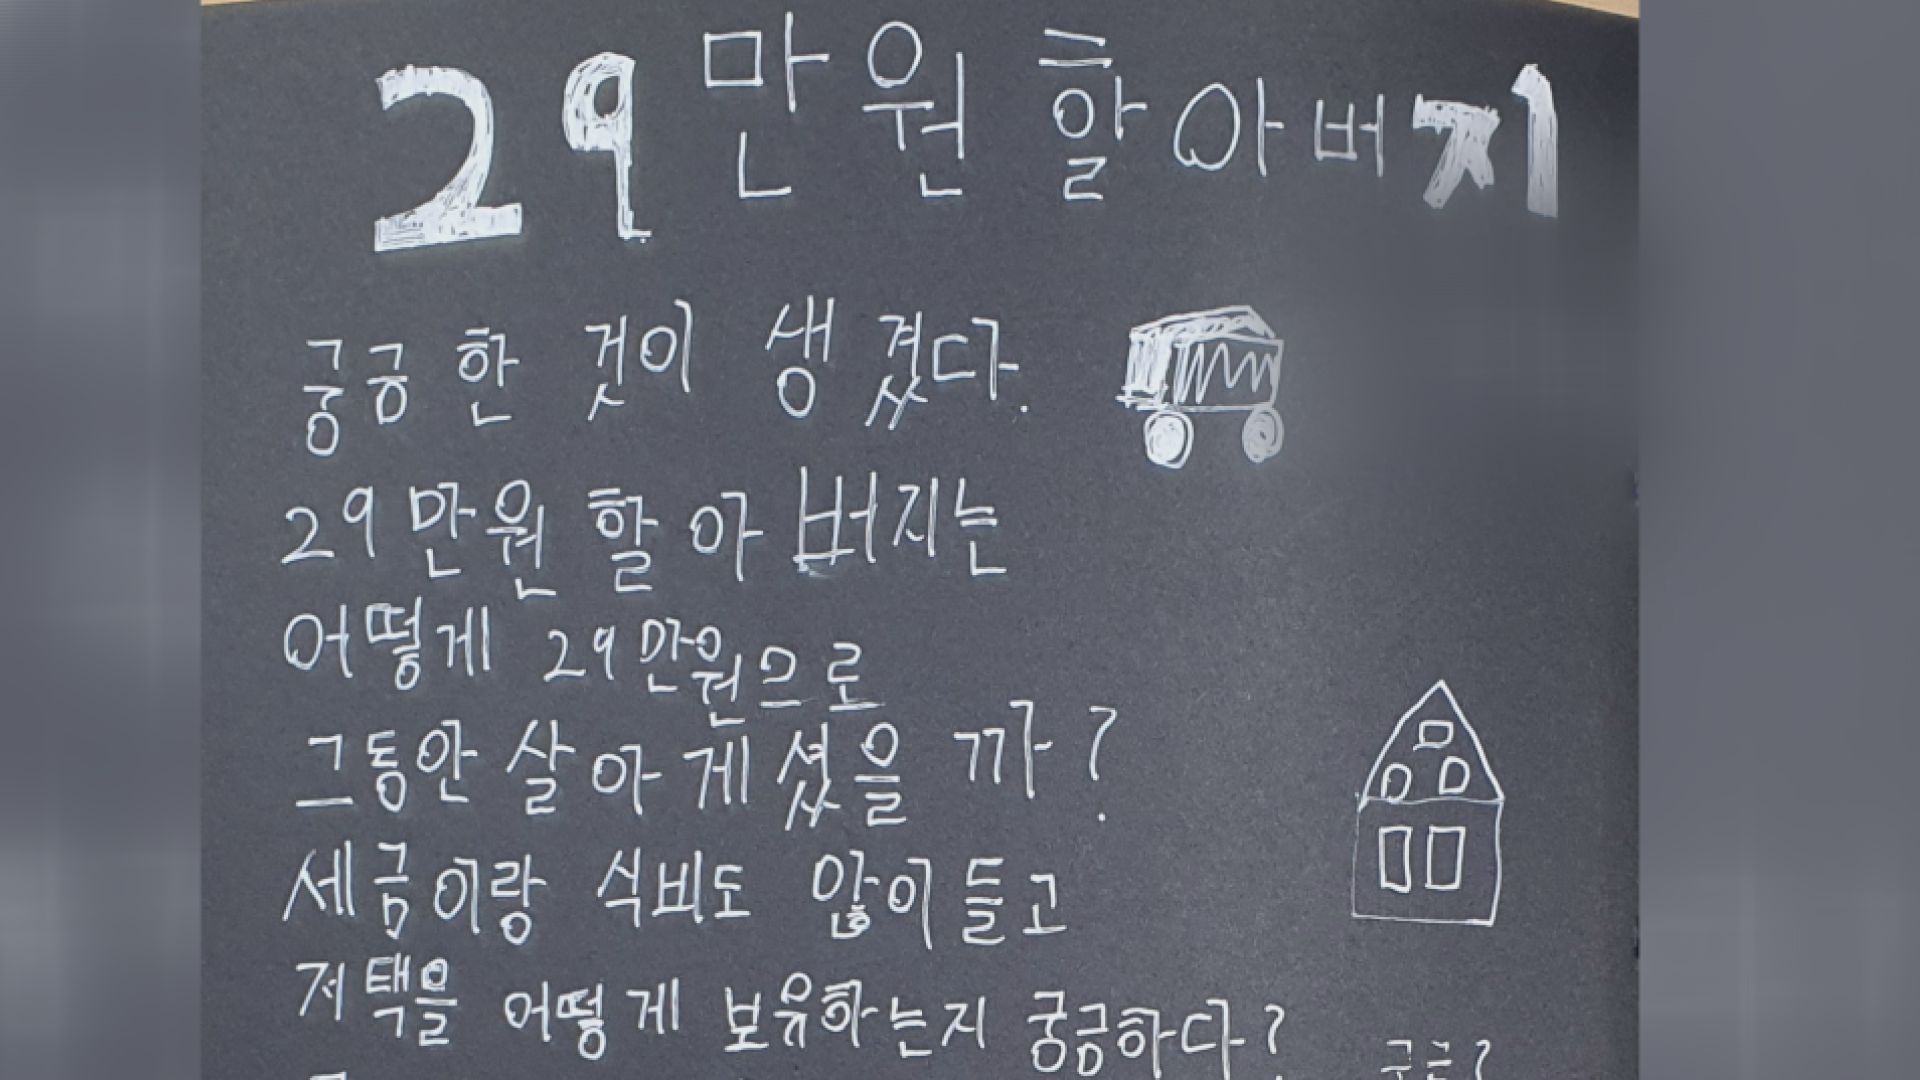 29만원 할아버지
궁금한 것이 생겼다.
29만원 할아버지는
어떻게 29만원으로
그동안 살아게셨을까?
세금이랑 식비도 많이들고
저택을 어떻게 보유하는지 궁금하다?